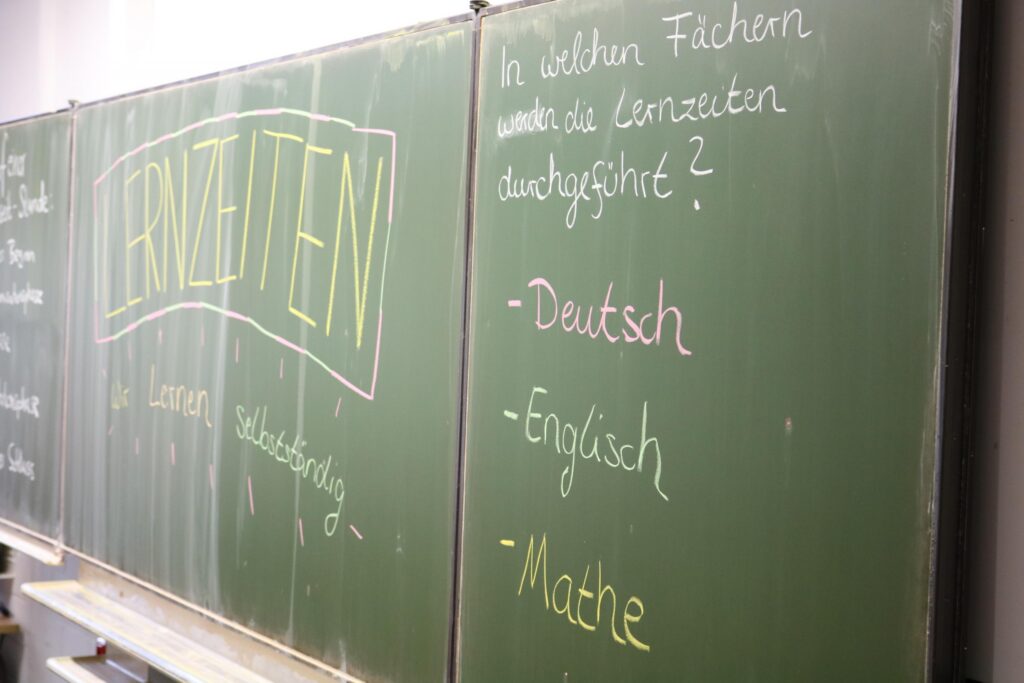 einer
Stunde:
Beginn
Schluss
LERNZEITEN
Wir Lernen
Selbstständig
In welchen Fächern
werden die Lernzeiten
durchgeführt?
- Deutsch
- Englisch
- Mathe